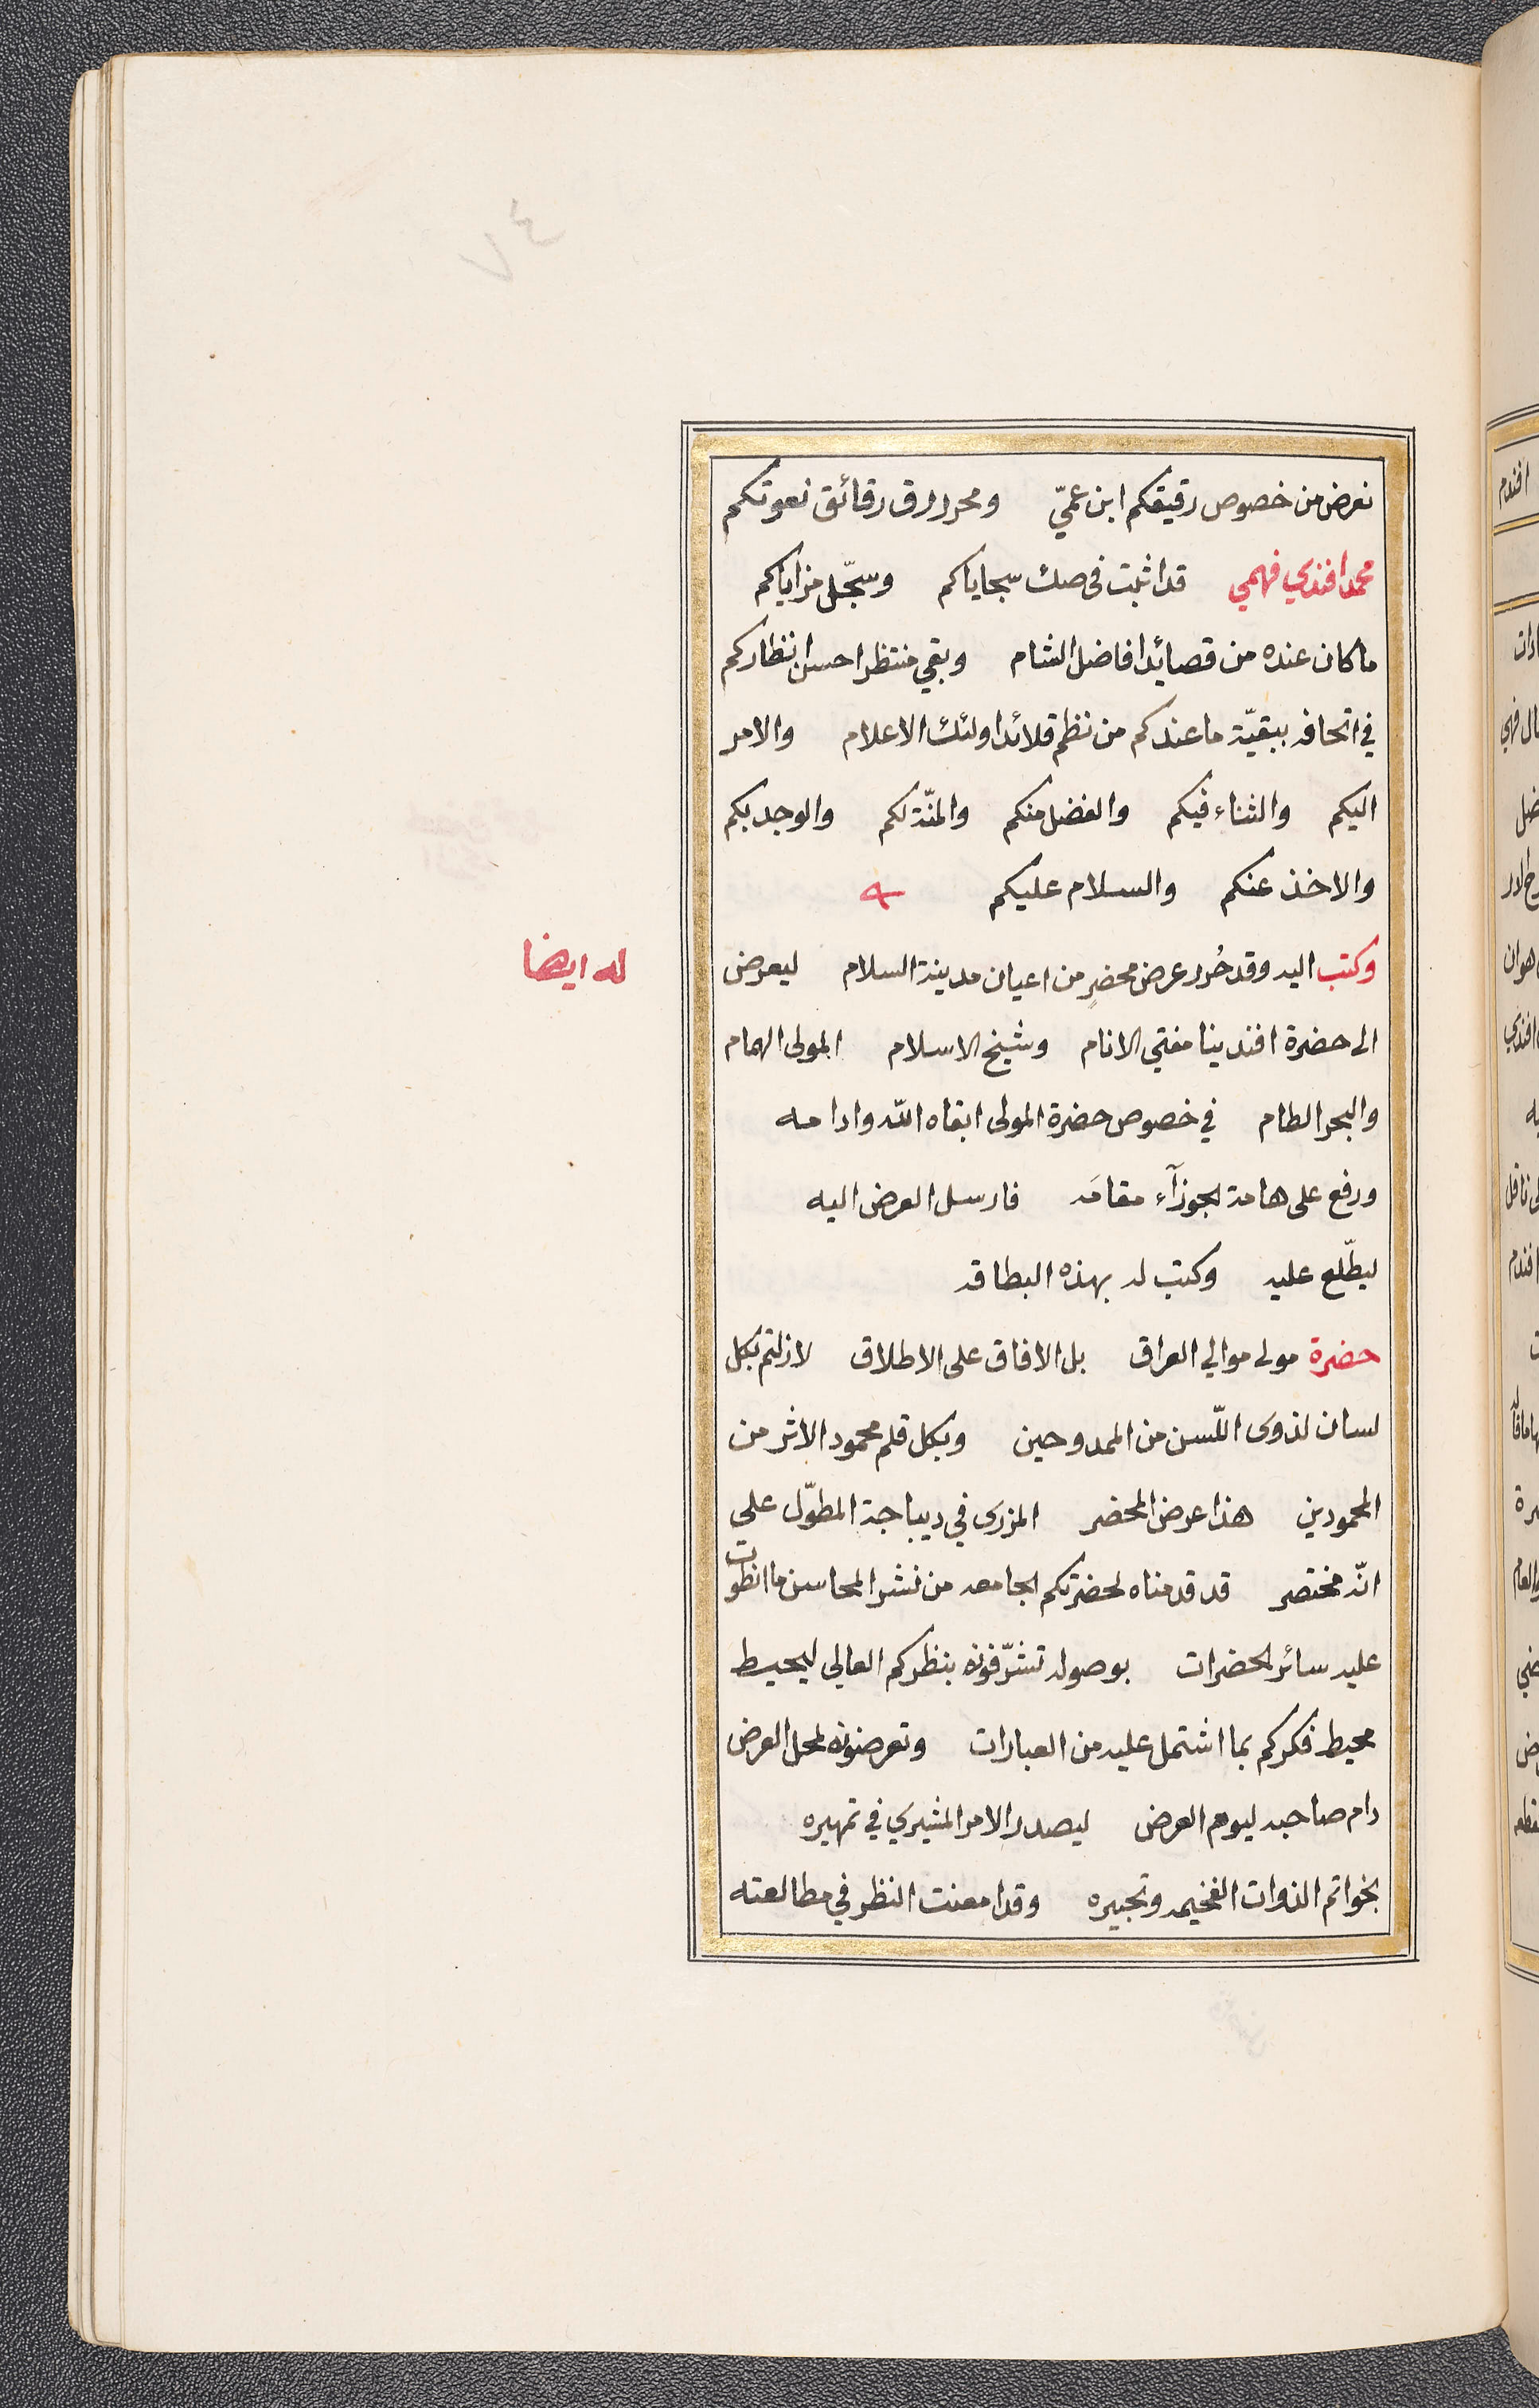 نعرض من خصوص رقيقكم ابن عمّي ومحرر رق رقائق نعوتكم
محمد افندي فهمي قد اثبت في صك سجاياكم وسجّل مزاياكم
ما كان عنده من قصائد افاضل الشام وبقي منتظرا حسن انظاركم
في اتحافه ببقيّة ما عندكم من نظم قلائد اولئك الاعلام والامر
اليكم والثناء فيكم والفضل منكم والمنّة لكم والوجد بكم
والاخذ عنكم والسلام عليكم
وكتب اليه وقد حُرر عرض محضرٍ من اعيان مدينة السلام ليعرض
له ايضا
الى حضرة افندينا مفتي الانام وشيخ الاسلام المولى الهمام
والبحر الطام في خصوص حضرة المولى ابقاه الله وادامه
ورفع على هامة الجوزآء مقامَه فارسل العرض اليه
ليطّلع عليه وكتب له بهذه البطاقه
حضرة مولى موالي العراق بل الافاق على الاطلاق لازلتم بكل
لسان لذوى اللّسن من الممدوحين وبكل قلم محمود الاثر من
المحمودين هذا عرض المحضر المزرى في ديباجة المطوّل على
انّه مختصر قد قدمناه لحضرتكم الجامعه من نشر المحاسن ما انطوت
عليه سائر الحضرات بوصوله تشرّفونه بنظركم العالي ليحيط
محيط فكركم بما اشتمل عليه من العبارات وتعرضونه لمحل العرض
دام صاحبه ليوم العرض ليصدر الامر المشيري في تمهيره
بخواتم الذوات الفخيمه وتحبيره وقد امعنت النظر في مطالعته